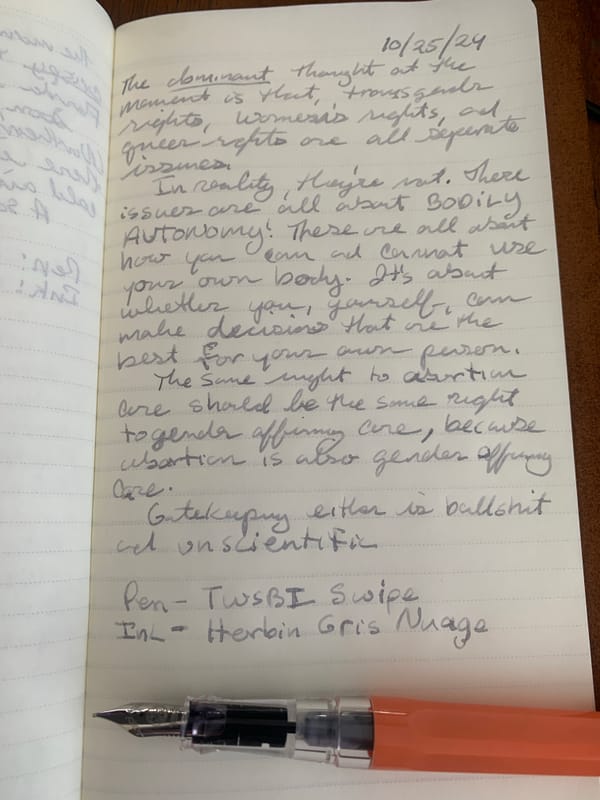 10/25/24
The dominant thought at the
moment is that, transgender
rights, women's rights, and
queer rights are all seperate
issues.
In reality, they're not. These
issues are all about BODILY
AUTONOMY! These are all about
how you can and cannot use
your own body. It's about
whether you, yourself, can
make decisions that are the
best for your own person.
The same right to abortion
care should be the same right
to gender affirming care, because
abortion is also gender affirming
care.
Gatekeeping either is bullshit
and unscientific
Pen - TWSBI Swipe
Ink - Herbin Gris Nuage
Pen:
Ink: